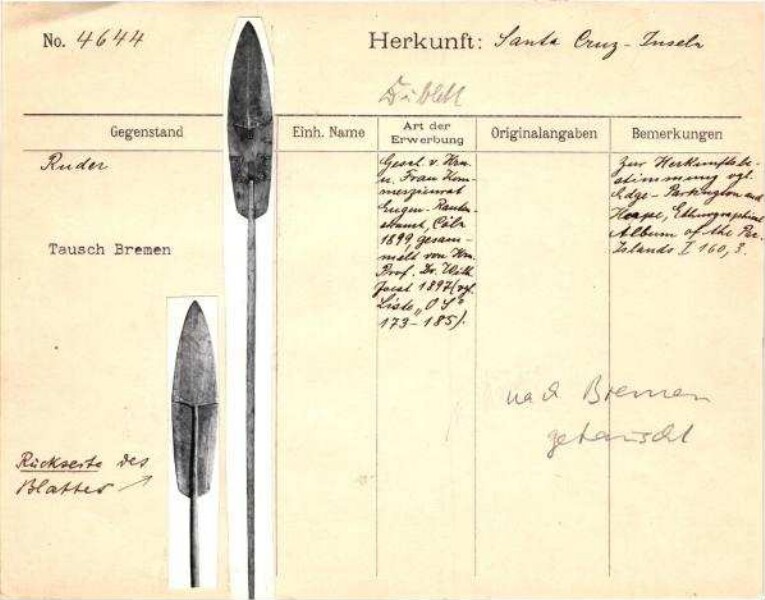 No. 4644
Herkunft: Santa Cruz-Inseln
Dublett
Gegenstand
Einh. Name
Art der
Erwerbung
Originalangaben
Bemerkungen
Ruder
Tausch Bremen
Rückseite des
Blattes
Gesch. v. Hrn.
u. Frau Kom-
merzienrat
Eugen Rauten-
strauch, Cöln
1899, gesam-
melt von Hrn.
Prof. Dr. Wilh.
Joest 1897 (vgl.
Liste „
173-185).
Zur Herkunftsbe-
stimmung vgl.
Edge-Partington and
Heape, Ethnographical
Album of the Pac.
Islands I 160, 3.
nach Bremen
getauscht